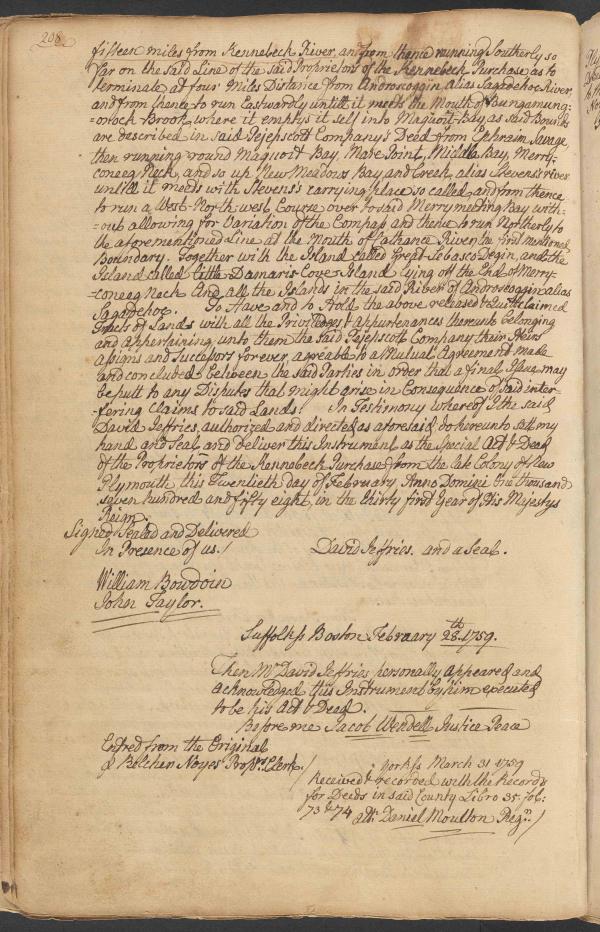 208.
fifteen miles from Kennebeck River, and from thence running Southerly so
far on the said Line of the said Proprietors of the Kennebeck Purchase as to
terminate at four Miles Distance from Androscoggin alias Sagadehoc River,
and from thence to run Eastwardly untill it meets the Mouth of Bungamung=
=onock Brook where it emptys it self into Maquoit Bay, as said Bounds
are described in said Pejepscott Company's Deed from Ephraim Savage
then running round Maquoit Bay, Mare Point, Middle Bay, Merry-
coneeg Neck, and so up New Meadows Bay and Creek, alias Stevens's river
untill it meets with Stevens's carrying place so called, and from thence
to run a West-North west Course over to said Merry meeting Bay with=
=out allowing for Variation of the Compass and thence to run Northerly to
the aforementioned Line at the Mouth of Cathance River the first mentioned
Boundary. Together with the Island called Great Sebasco Degin, and the
Island called little Damaris Cove Island lying off the End of Merry-
=coneeg Neck And all the Islands in the said River of Androscoggin alias
Sagadehoc. To Have and to Hold the above released & Quitclaimed
Tracts of Lands with all the Priviledges & Appurtenances thereunto belonging
and appertaining unto them the said Pejepscott Company their Heirs
assigns and Successors forever, agreable to a Mutual Agreement made
and concluded between the said Parties in order that a final Issue may
be putt to any Disputes that might arise in Consequence of said inter-
-fering Claims to said Lands. In Testimony whereof I the said
David Jeffries, authorized and directed as aforesaid do hereunto sett my
hand and Seal and deliver this Instrument as the Special Act & Deed
of the Proprietors of the Kennebeck Purchase from the late Colony of New
Plymouth this Twentieth day of February Anno Domini One thousand
seven hundred and fifty eight, in the thirty first Year of His Majestys
Reign.
Signed Sealed and Delivered
In Presence of us. / David Jeffries. and a Seal.
William Bowdoin
John Taylor.
Suffolk ss Boston February 28.th 1759.
Then Mr David Jeffries personally appeared and
acknowledged this Instrument by him executed
to be his Act & Deed.
Before me Jacob Wendell Justice Peace
Entred from the Original
p Belcher Noyes Proprs. Clerk. /
York ss March 31 1759
Received & recorded with the Records
for Deeds in said County Libro 35. fol:
73 & 74 attr. Daniel Moulton Regr. /